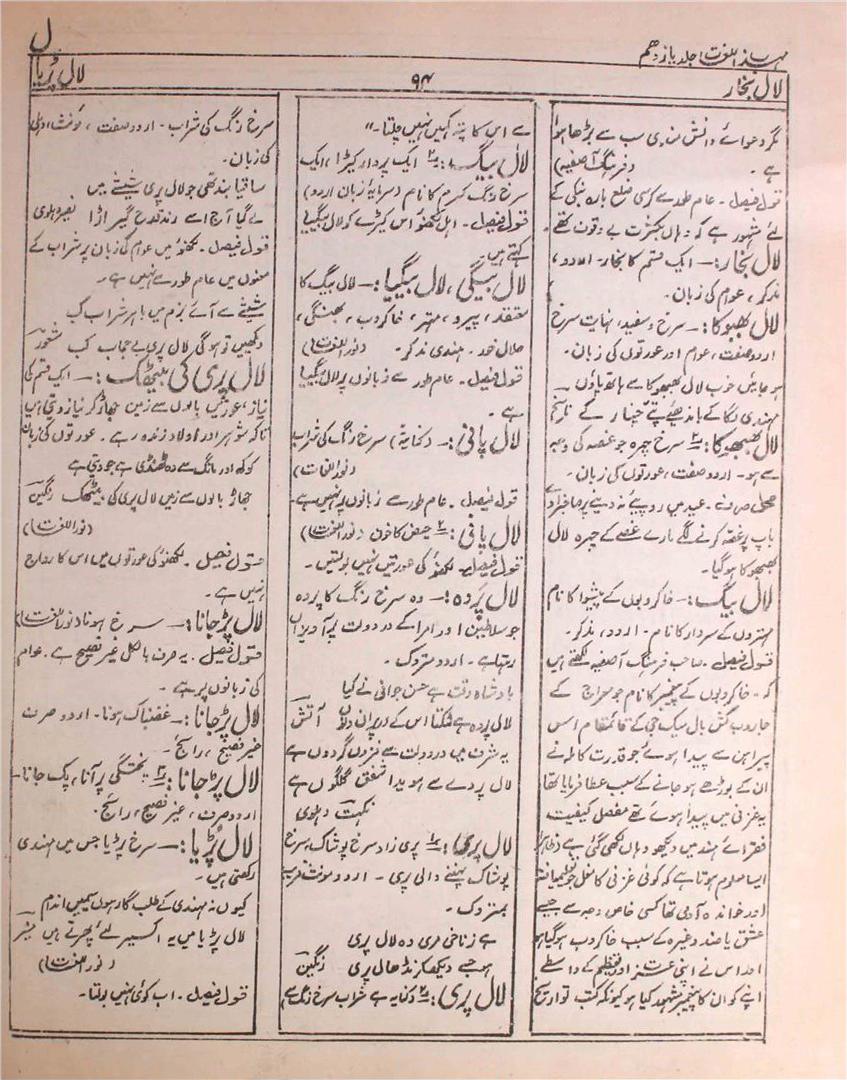 مہذب اللغت، جلد یازدهم
ل
لال بخار
۹۴
لال پُڑیا
مگر دعوائے دانش مندی سب سے بڑھا ہوا
ہے ۔ (فرہنگ آصفیہ)
قول فیصل ۔ عام طور سے کرسی ضلع بارہ بنکی کے
لئے مشہور ہے کہ وہاں بکثرت بے وقوف تھے
لال بخار:۔ ایک قسم کا بخار۔ اردو،
مذکر، عوام کی زبان۔
لال بھبوکا:۔ سرخ و سفید، نہایت سرخ
اردو صفت، عوام اور عورتوں کی زبان۔
ہو جائیں خوب لال بھبھوکا سے ہاتھ پاؤں
مہندی لگا کے باندھیے پتے چنار کے ناسخ
لال بھبھوکا: ۲ سرخ چہرہ جو غصہ کی وجہ
سے ہو۔ اردو صفت، عورتوں کی زبان۔
محل صرف ۔ عید میں روپیے نہ دینے پر صاحبزادے
باپ پر غصہ کرنے لگے مارے غصے کے چہرہ لال
بھبھوکا ہو گیا۔
لال بیگ:۔ خاکروبوں کے پیشوا کا نام
مہتروں کے سردار کا نام۔ اردو، مذکر۔
قول فیصل ۔ صاحب فرہنگ آصفیہ لکھتے ہیں
کہ۔ خاکروبوں کے پیغمبر کا نام جو معراج کے
جاروب کش بال میک جی کے قائمقام اسس
پیراہن سے پیدا ہوئے جو قدرت کاملہ نے
ان کے بوڑھے ہو جانے کے سبب عطا فرمایا تھا
یہ غزنی میں پیدا ہوئے تھے مفصل کیفیت
فقرائے ہند میں دیکھو وہاں لکھی گئی ہے ظاہراً
ایسا معلوم ہوتا ہے کہ کوئی غزنی کا مغل جو تعلیمیافتہ
اور خواندہ آدمی تھا کسی خاص وجہ سے جیسے
عشق یا ضد وغیرہ کے سبب خاکروب ہو گیا ہو
اور اس نے اپنی عزت اور تعظیم کے واسطے
اپنے کو ان کا پیغمبر مشہور کیا ہو کیونکہ کتب تواریخ
سے اس کا پتہ کہیں نہیں چلتا۔"
لال بیگ: ۲ ایک پردار کیڑا، ایک
سرخ رنگ کرم کا نام (سرمایۂ زبان اردو)
قول فیصل۔ اہل لکھنؤ اس کیڑے کو لال بیگیا
کہتے ہیں۔
لال بیگی، لال بیگیا:۔ لال بیگ کا
معتقد، پیرو، مہتر، خاکروب، بھنگی،
حلال خور۔ ہندی مذکر۔ (نور اللغت)
قول فیصل۔ عام طور سے زبانوں پر لال بیگیا
ہے۔
لال پانی:۔ (کنایۃً) سرخ رنگ کی شراب
(نور اللغات)
قول فیصل۔ عام طور سے زبانوں پر نہیں ہے۔
لال پانی: ۲ حیض کا خون (نور اللغت)
قول فیصل۔ لکھنؤ کی عورتیں نہیں بولتیں۔
لال پردہ:۔ وہ سرخ رنگ کا پردہ
جو سلاطین اور امرا کے در دولت پر آویزاں
رہتا ہے۔ اردو متروک۔
بادشاہ وقت ہے حسن جوانی نے کیا
لال پردہ ہے لٹکتا اس کے در پر ان دنوں آتش
یہ شرف میں در دولت سے فزوں گردوں ہے
لال پردے سے ہویدا شفق گلگوں ہے
نکہت دہلوی
لال پری: ۱ پری زاد سرخ پوشاک، سرخ
پوشاک پہننے والی پری۔ اردو مونث قریب
بمتروک۔
ہے زناخی مری وہ لال پری
ہو جسے دیکھ کر نڈھال پری رنگین
لال پری: ۲ (کنایہ ہے شراب سرخ رنگ سے)
سرخ رنگ کی شراب۔ اردو صفت، مونث، دہلی
کی زبان۔
ساقیا بند تھی جو لال پری شیشے میں
لے گیا آج اسے رند قدح گیر اڑا نصیر دہلوی
قول فیصل۔ لکھنؤ میں عوام کی زبان پر شراب کے
معنوں میں عام طور سے نہیں ہے۔
شیشے سے آئے بزم میں باہر شراب کب
دیکھیں تو ہوگی لال پری بے حجاب کب مشہور
لال پری کی بیٹھک:۔ ایک قسم کی
نیاز، عورتیں بالوں سے زمین جھاڑ کر نیاز دیتی ہیں
تاکہ شوہر اور اولاد زندہ رہے۔ عورتوں کی زبان
کوکھ اور مانگ سے وہ ٹھنڈی ہے جو دیتی ہے
جھاڑ بالوں سے زمیں لال پری کی بیٹھک رنگین
(نور اللغت)
قول فیصل۔ لکھنؤ کی عورتوں میں اس کا رواج
نہیں ہے۔
لال پڑ جانا:۔ سرخ ہونا (نور اللغت)
قول فیصل۔ یہ صرف بالکل غیر فصیح ہے۔ عوام
کی زبانوں پر ہے۔
لال پڑ جانا:۔ غضبناک ہونا۔ اردو صرف
غیر فصیح، رائج۔
لال پڑ جانا: ۲ پختگی پر آنا، پک جانا۔
اردو صرف، غیر فصیح، رائج۔
لال پُڑیا:۔ سرخ پڑیا جس میں مہندی
رکھتی ہیں۔
کیوں نہ مہندی کے طلب گار ہوں سیمیں اندام
لال پڑیا میں یہ اکسیر لئے پھرتے ہیں منیر
(نور اللغت)
قول فیصل۔ اب کوئی نہیں بولتا۔